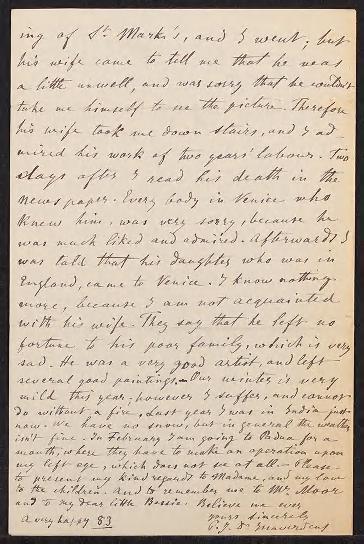 ing of St. Mark's, and I went; but
his wife came to tell me that he was
a little unwell, and was sorry that he couldn't
take me himself to see the picture. Therefore
his wife took me down stairs, and I ad
mired his work of two years' labour. Two
days after I read his death in the
newspaper. Every body in Venice who
knew him, was very sorry, because he
was much liked and admired. Afterwards I
was told that his daughter who was in
England, came to Venice. I know nothing
more, because I am not acquainted
with his wife. They say that he left no
fortune to his poor family, which is very
sad. He was a very good artist, and left
several good paintings. Our winter is very
mild this year; however I suffer, and cannot
do without a fire. Last year I was in India just
now. We have no snow, but in general the weather
isn't fine. In February I am going to Padua, for a
month, where they have to make an operation upon
my left eye, which does not see at all. Please
to present my kind regards to Madame, and my love
to the children. And to remember me to Mr. Moor
and to my dear little Bessie. Believe me ever
yours sincerely
a very happy 83